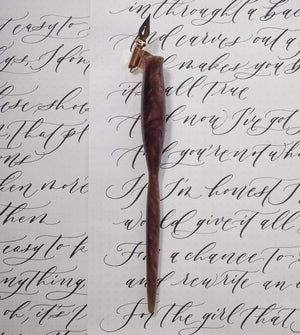 easy to
lys, I don
these shoe
n that pl
ons
aken more
then
easy to k
anything
oh, it's
in through a ba
And carves out a
makes you
it's all true
And now I've got
And you're not wh
If I'm honest I
would give it all
For a chance to
and rewrite an
For the girl that